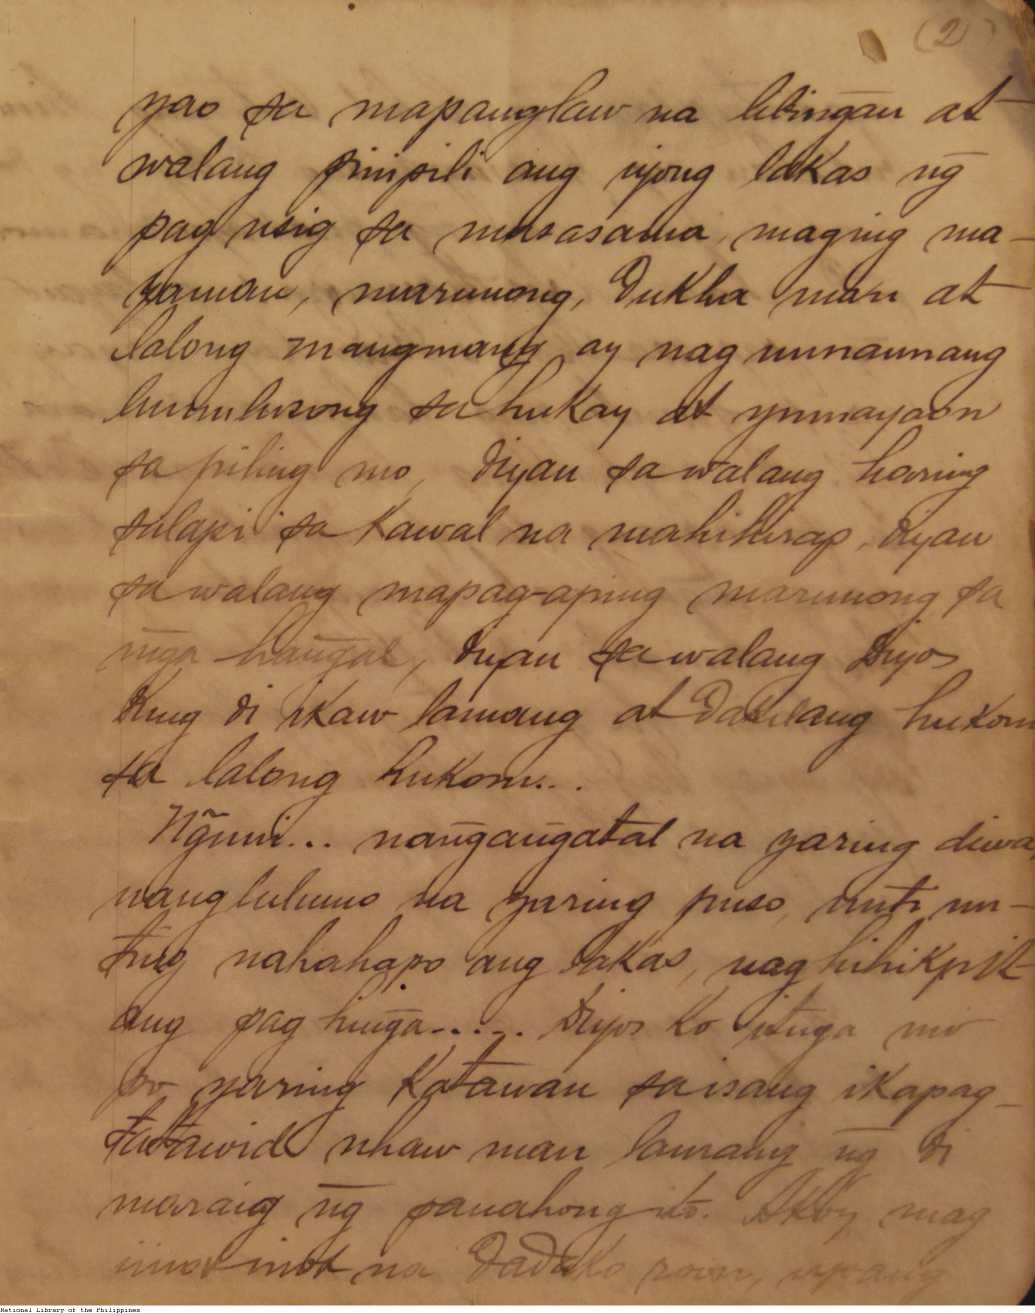 (2)
yao sa mapanglaw na libingan at
walang pinipili ang iyong lakas n̄g
pag usig sa masasama, maging ma-
yaman, marunong, dukha man at
lalong mangmang ay nag uunaunang
lumulusong sa hukay at yumayaon
sa piling mo, diyan sa walang haring
salapi sa kawal na mahihirap, diyan
sa walang mapag-aping marunong sa
m̄ga han̄gal, diyan sa walang Diyos
kung di ikaw lamang at dakilang hukom
sa lalong hukom...
N̄guni... nan̄gan̄gatal na yaring diwa
nanglulumo na yaring puso, unti un-
ting nahahapo ang lakas, nag hihikpit
ang pag hin̄ga..... Diyos ko itun̄ga mo
po yaring katawan sa isang ikapag-
tatawid uhaw man lamang n̄g di
maraig n̄g panahong ito. Ako'y mag
iinot inot na dadako roon, upang
National Library of the Philippines